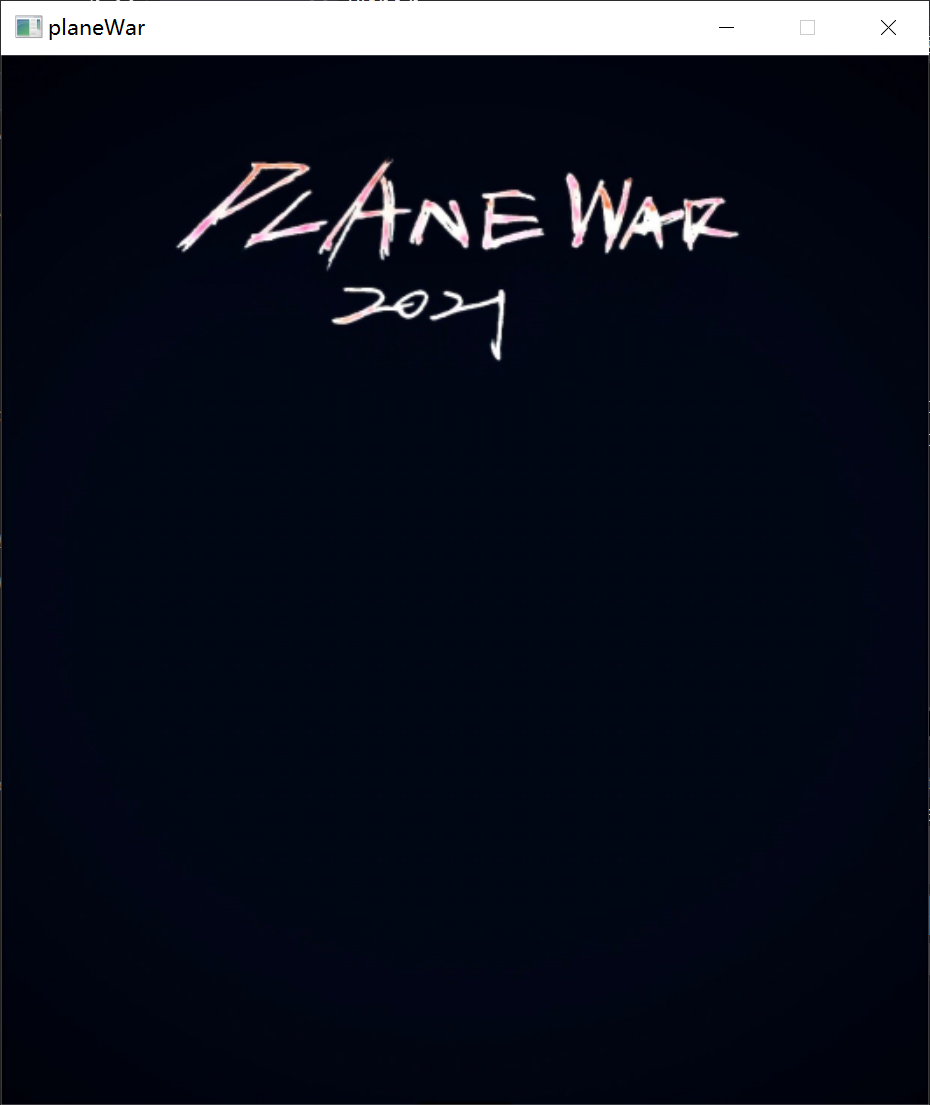 planeWar
PLANE WAR
2021